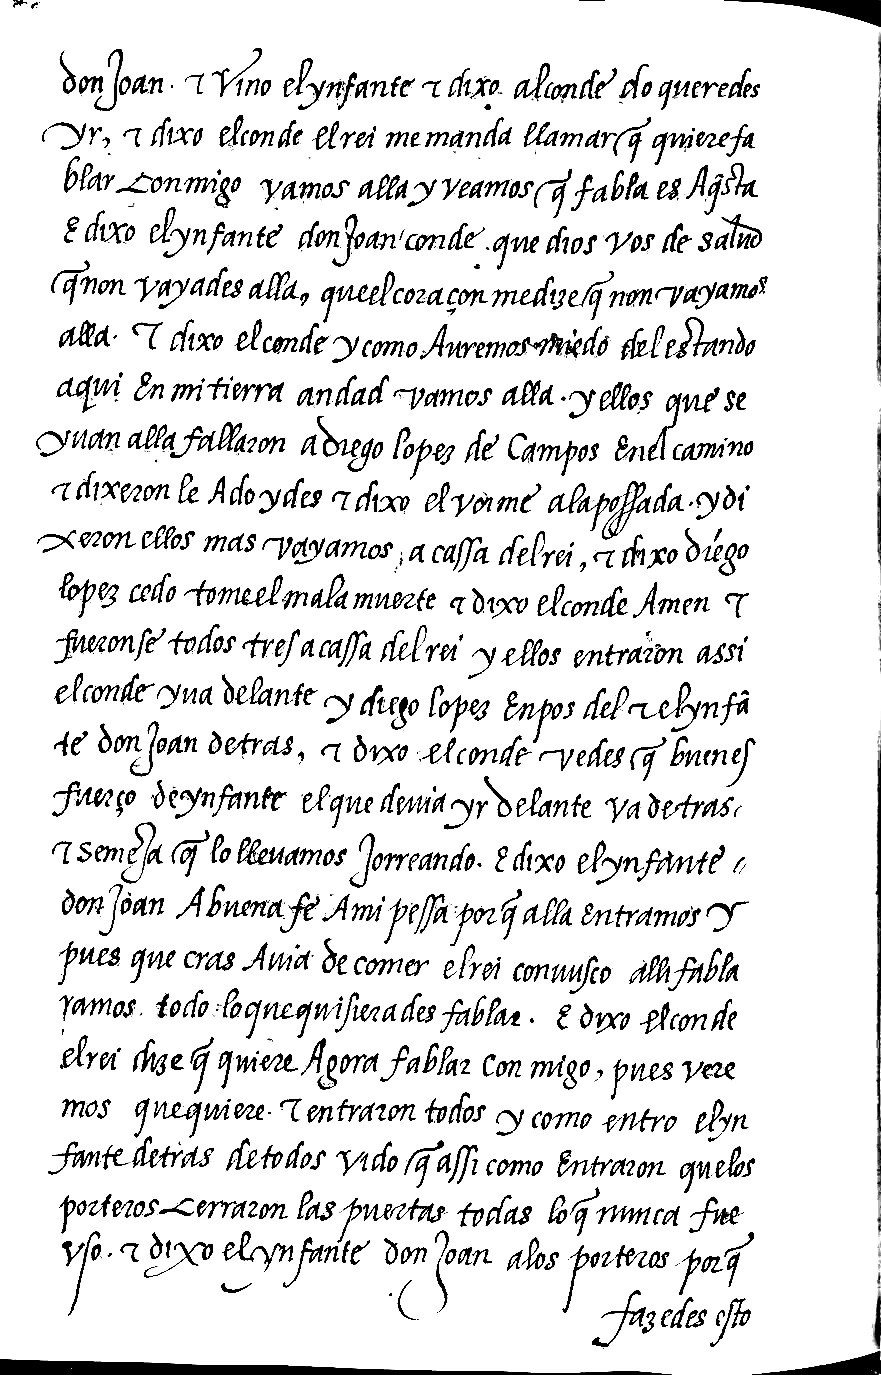 don Joan. τ Vino el ynfante τ dixo al conde do queredes
yr, τ dixo el conde el rei me manda llamar q̃ quiere fa
blar conmigo vamos alla y veamos q̃ fabla es Aq̃sta
E dixo el ynfante don Joan conde que dios vos de salud
q̃ non vayades alla, que el coraçon me dize q̃ non vayamos
alla. τ dixo el conde y como Auremos miedo del estando
aqui En mi tierra andad vamos alla. y ellos que se
yuan alla fallaron a Diego lopez de Campos En el camino
τ dixeron le Ado ydes τ dixo el voi me a la possada. y di
xeron ellos mas vayamos a cassa del rei, τ dixo diego
lopez cedo tome el mala muerte τ dixo el conde Amen τ
fueronse todos tres a cassa del rei y ellos entraron assi
el conde yua delante y diego lopez Enpos del τ el ynfã
te don Joan detras, τ dixo el conde vedes q̃ buen es
fuerço de ynfante el que deuia yr delante va detras
τ semeJa q̃ lo lleuamos Jorreando. E dixo el ynfante
don Joan A buena fe A mi pessa porq̃ alla Entramos y
pues que cras Auia de comer el rei conuusco alli fabla
ramos todo lo que quisierades fablar. E dixo el conde
el rei dize q̃ quiere Agora fablar Con migo, pues vere
mos que quiere. τ entraron todos y como entro el yn
fante detras de todos vido q̃ assi como Entraron que los
porteros Cerraron las puertas todas lo q̃ nunca fue
vso. τ dixo el ynfante don Joan a los porteros porq̃
fazedes esto